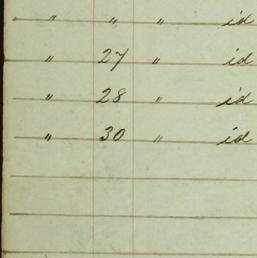 " " " id
" 27 " id
" 28 " id
" 30 " id